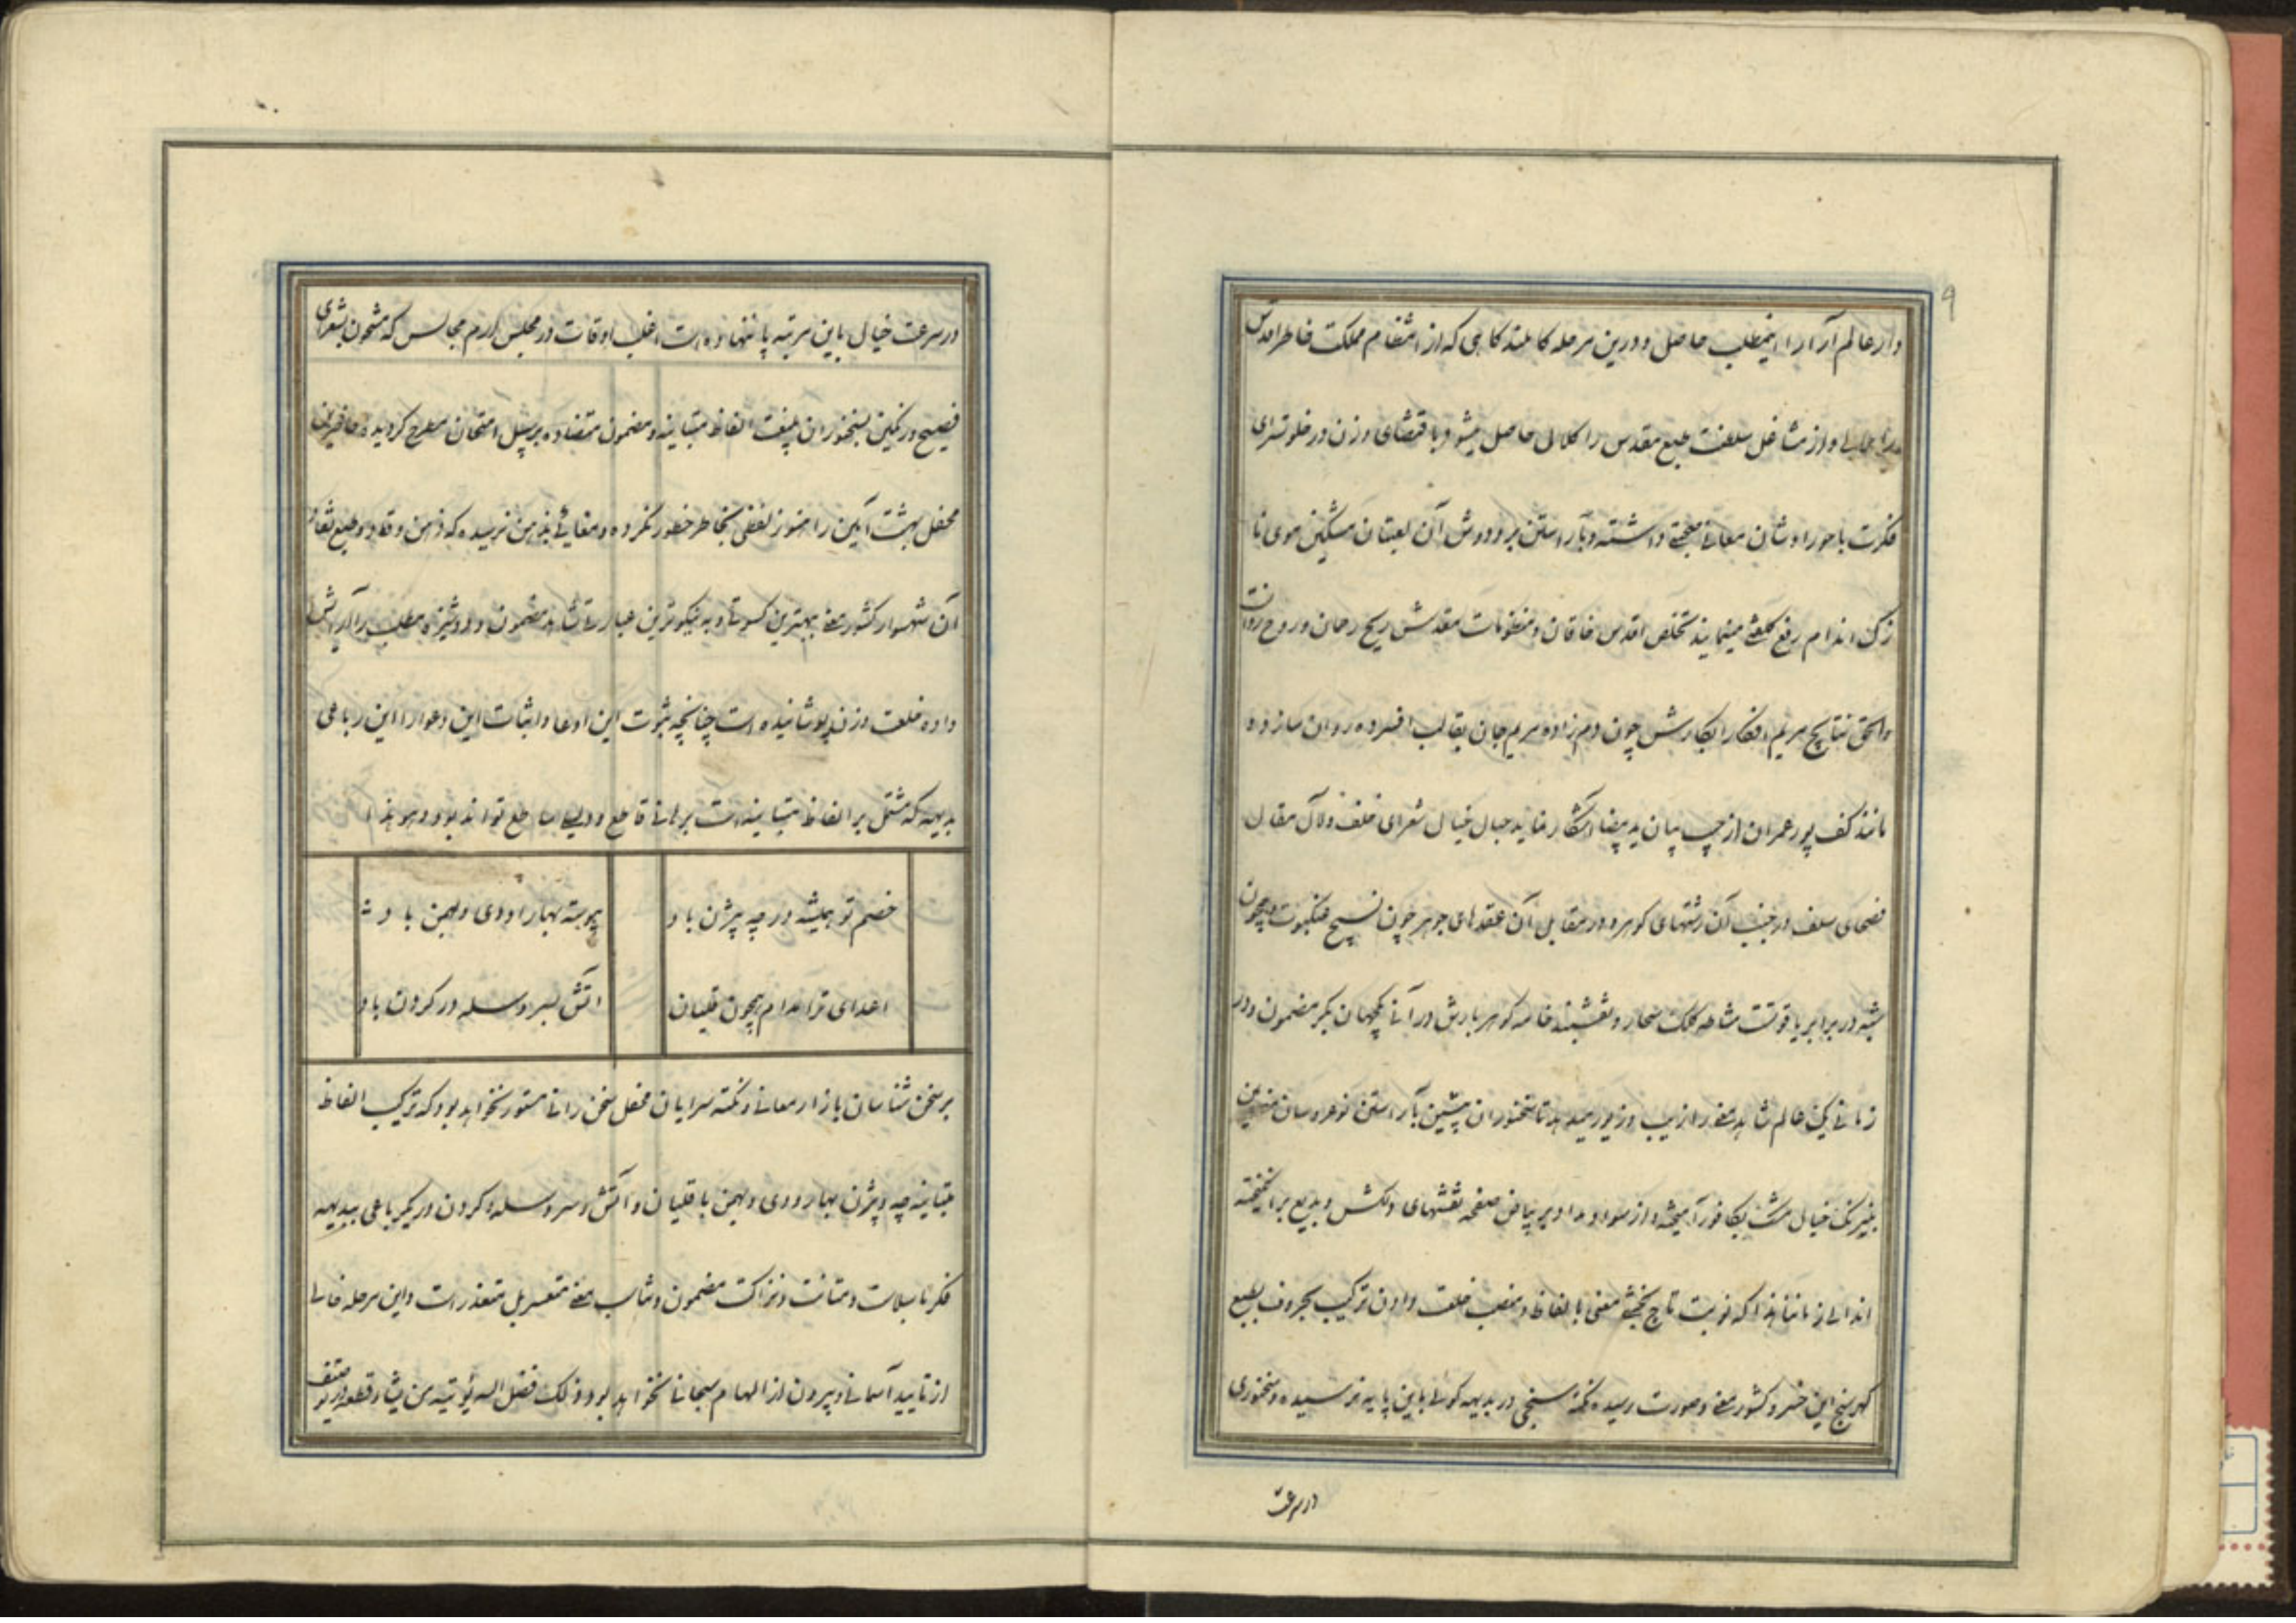 ۹
دار عالم آرا را اینمطلب حاصل و درین مرحله کامل بلند کاهی که از انتظام مملکت خاطر اقدس
را ملالی و از مشاغل سلطنت طبع مقدس را کلالی حاصل میشود باقتضای وزن در خلوتسرای
فکرت با حورا وشان معانی صحبتی داشته و بآراستن بر و دوش آن لعبتان مشکین موی نا
زک اندام رفع کلفتی مینمایند تخلص اقدس خاقان و منظومات مقدسش ریح ریحان و روح روانست
والحق نتایج مریم افکار ابکارش چون دم زاده مریم جان بقالب افسرده روان سازد و
مانند کف پور عمران از جیب بیان ید بیضا آشکار نماید حبال خیال شعرای خلف و لآل مقال
فصحای سلف در جنب آن رشتهای کوهر و در مقابل آن عقدهای جوهر چون نسیج عنکبوت و همچون
شبه در برابر یاقوتست مشاطه کلک سحار و نقشبند خامه کوهر بارش در آنی یکجهان بکر مضمون و در
زمانی یک عالم شاهد معنی را زیب و زیور میدهد تا سخنوران پیشین بآراستن نوعروسان
نیرنک خیال مشک بکافور آمیخته و از سواد مداد بر بیاض صفحه نقشهای دلکش و بدیع برانکیخته
اند الی زماننا هذا که نوبت تاج بخشی معنی بالفاظ و منصب خلعت دادن ترکیب بحروف بطبع
کهر سنج این خسرو کشور معنی و صورت رسیده نکته سنجی در بدیهه کوئی باین پایه نرسیده و سخنوری
در سرعت
در سرعت خیال باین مرتبه پا ننهاده است اغلب اوقات در مجلس ارم مجالس که مشحون بشعرای
فصیح و رنکین سخنوران الفاظ متباینه و مضمون متضاده بر سبیل امتحان مطرح کردیده حاضرین
محفل بهشت آیین را هنوز لفظی بخاطر خطور نکرده و معانی بذهن نرسیده که ذهن وقاد و طبع نقاد
آن شهسوار کشور معنی بهترین کسوتی و به نیکوترین عبارتی شاهد مضمون و دوشیزه مطلب را آرایش
داده خلعت وزن پوشانیده است چنانچه ثبوت این ادعا و اثبات این دعوا را این رباعی
بدیهه که مشتمل بر الفاظ متباینه است برهانی قاطع و دلیلی ساطع تواند بود و هو هذا
خصم تو همیشه در چه بیژن باد پیوسته بهار او دی و بهمن باد
اعدای ترا مدام همچون قلیان آتش بسر و سلسله در کردن باد
بر سخن شناسان بازار معانی و نکته سرایان محفل سخن رانی مستور نخواهد بود که ترکیب الفاظ
متباینه چه و بیژن بهار و دی و بهمن با قلیان و آتش و سر و سلسله و کردن در یک رباعی ببدیهه
فکر با سلاست و متانت و نزاکت مضمون و تناسب معنی متعسر بل متعذر است و این مرحله خالی
از تایید آسمانی و بیرون از الهام سبحانی نخواهد بود و ذلک فضل الله یؤتیه من یشاء قطعه